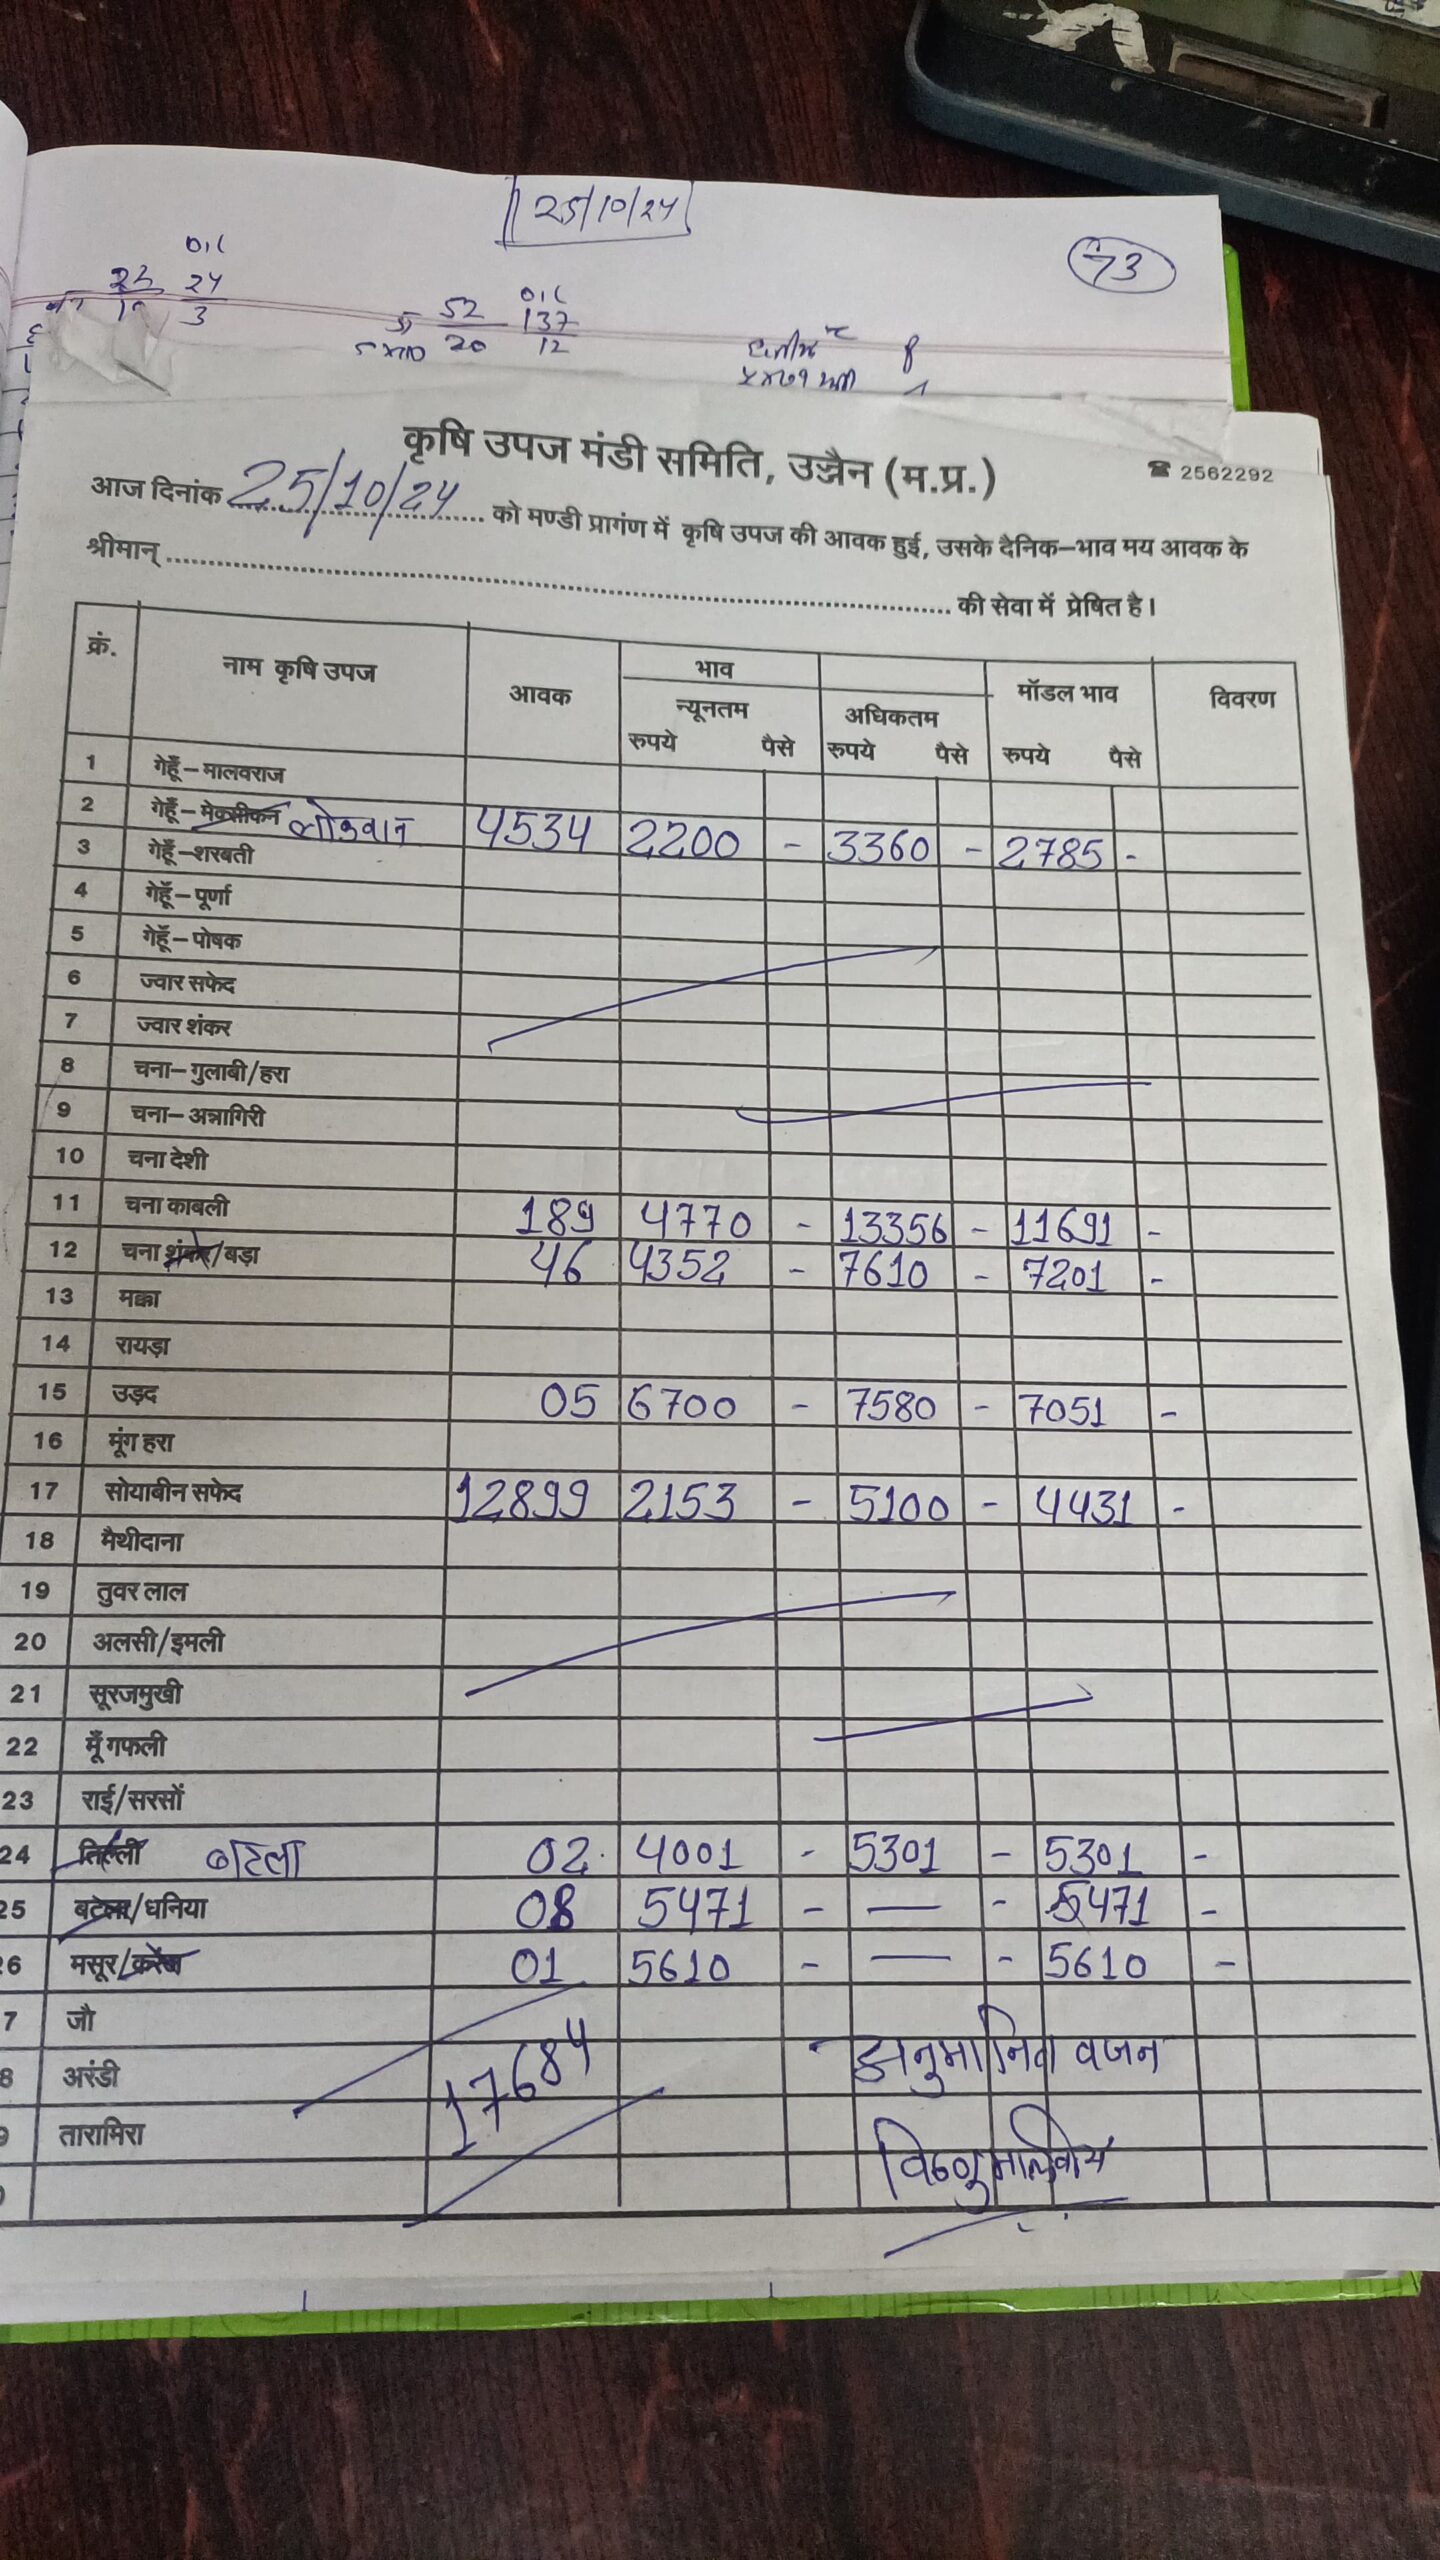 25/10/24
73
23 24
3
52 137
20 12
कृषि उपज मंडी समिति, उज्जैन (म.प्र.) ☎ 2562292
आज दिनांक 25/10/24 को मण्डी प्रागंण में कृषि उपज की आवक हुई, उसके दैनिक-भाव मय आवक के
श्रीमान् की सेवा में प्रेषित है।
क्रं. नाम कृषि उपज आवक भाव मॉडल भाव विवरण
न्यूनतम अधिकतम
रुपये पैसे रुपये पैसे रुपये पैसे
1 गेहूँ-मालवराज
2 गेहूँ-मेक्सीकन लोकवान 4534 2200 - 3360 - 2785 -
3 गेहूँ-शरबती
4 गेहूँ-पूर्णा
5 गेहूँ-पोषक
6 ज्वार सफेद
7 ज्वार शंकर
8 चना-गुलाबी/हरा
9 चना-अन्नागिरी
10 चना देशी
11 चना काबली 189 4770 - 13356 - 11691 -
12 चना शंकर/बड़ा 46 4352 - 7610 - 7201 -
13 मक्का
14 रायड़ा
15 उड़द 05 6700 - 7580 - 7051 -
16 मूंग हरा
17 सोयाबीन सफेद 12899 2153 - 5100 - 4431 -
18 मैथीदाना
19 तुवर लाल
20 अलसी/इमली
21 सूरजमुखी
22 मूँगफली
23 राई/सरसों
24 तिल्ली बटला 02 4001 - 5301 - 5301 -
25 बटला/धनिया 08 5471 - — - 5471 -
26 मसूर/ 01 5610 - — - 5610 -
7 जौ
8 अरंडी 17684 अनुमानित वजन
9 तारामिरा
विष्णु मालवीय